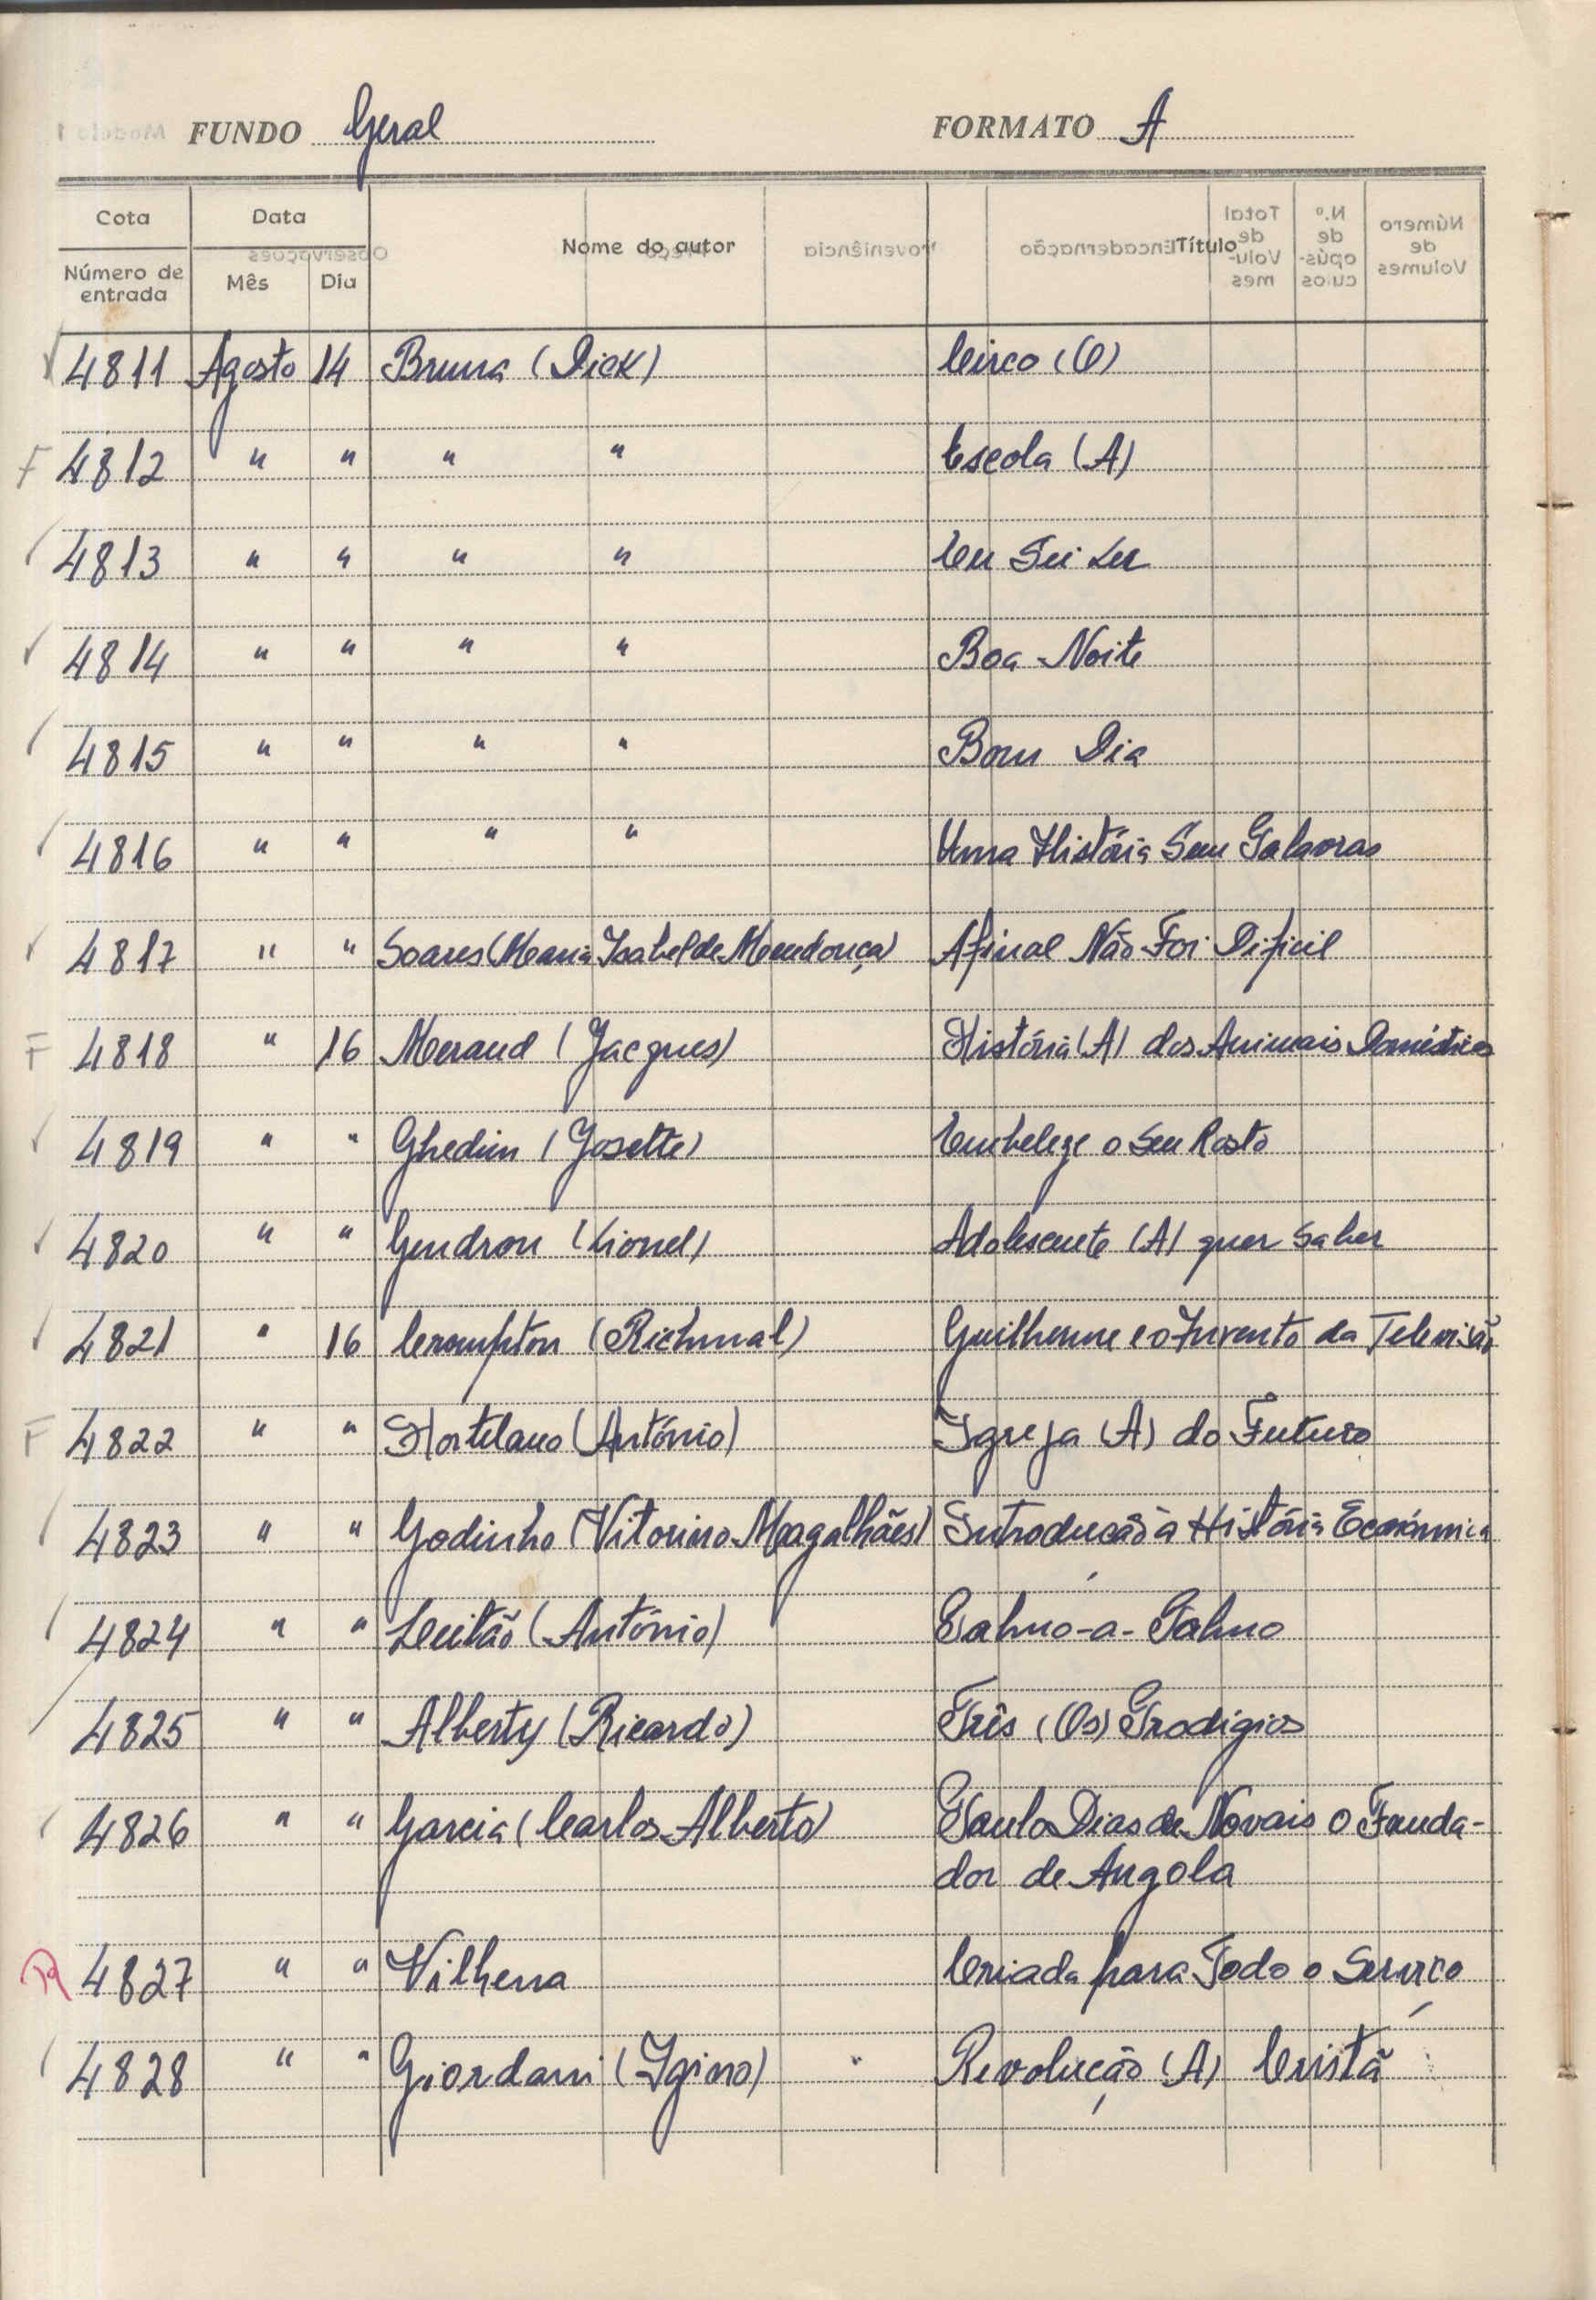 FUNDO Geral FORMATO A
Cota Data Nome do autor Título
Número de entrada Mês Dia
4811 Agosto 14 Bruna (Dick) Circo (O)
F 4812 " " " " Escola (A)
4813 " " " " Eu Sei Ler
4814 " " " " Boa Noite
4815 " " " " Bom Dia
4816 " " " " Uma História Sem Palavras
4817 " " Soares (Maria Isabel de Mendonça) Afinal Não Foi Dificil
F 4818 " 16 Meraud (Jacques) História (A) dos Animais Domésticos
4819 " " Ghedin (Josette) Embeleze o Seu Rosto
4820 " " Gendron (Lionel) Adolescente (A) quer Saber
4821 " 16 Crompton (Richmal) Guilherme e o Invento da Televisão
F 4822 " " Hortelano (António) Igreja (A) do Futuro
4823 " " Godinho (Vitorino Magalhães) Introdução à História Económica
4824 " " Leitão (António) Palmo-a-Palmo
4825 " " Alberty (Ricardo) Três (Os) Prodigios
4826 " " Garcia (Carlos Alberto) Paulo Dias de Novais O Funda-
dor de Angola
4827 " " Vilhena Criada para Todo o Serviço
4828 " " Giordani (Igino) Revolução (A) Cristã